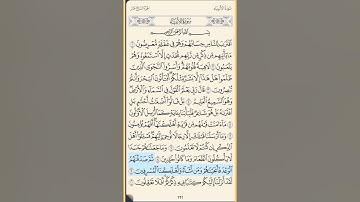 سُورَةُ الأَنبِيَاءِ
الجُزْءُ السَّابِعَ عَشَرَ
سُورَةُ الأَنبِيَاءِ
بِسْمِ اللَّهِ الرَّحْمَٰنِ الرَّحِيمِ
اقْتَرَبَ لِلنَّاسِ حِسَابُهُمْ وَهُمْ فِي غَفْلَةٍ مُّعْرِضُونَ ١
مَا يَأْتِيهِم مِّن ذِكْرٍ مِّن رَّبِّهِم مُّحْدَثٍ إِلَّا اسْتَمَعُوهُ وَهُمْ
يَلْعَبُونَ ٢ لَاهِيَةً قُلُوبُهُمْ وَأَسَرُّوا النَّجْوَى الَّذِينَ
ظَلَمُوا هَلْ هَٰذَا إِلَّا بَشَرٌ مِّثْلُكُمْ أَفَتَأْتُونَ السِّحْرَ وَأَنتُمْ
تُبْصِرُونَ ٣ قَالَ رَبِّي يَعْلَمُ الْقَوْلَ فِي السَّمَاءِ وَالْأَرْضِ
وَهُوَ السَّمِيعُ الْعَلِيمُ ٤ بَلْ قَالُوا أَضْغَاثُ أَحْلَامٍ بَلِ
افْتَرَاهُ بَلْ هُوَ شَاعِرٌ فَلْيَأْتِنَا بِآيَةٍ كَمَا أُرْسِلَ الْأَوَّلُونَ
٥ مَا آمَنَتْ قَبْلَهُم مِّن قَرْيَةٍ أَهْلَكْنَاهَا أَفَهُمْ يُؤْمِنُونَ
٦ وَمَا أَرْسَلْنَا قَبْلَكَ إِلَّا رِجَالًا نُّوحِي إِلَيْهِمْ فَاسْأَلُوا أَهْلَ
الذِّكْرِ إِن كُنتُمْ لَا تَعْلَمُونَ ٧ وَمَا جَعَلْنَاهُمْ جَسَدًا
لَّا يَأْكُلُونَ الطَّعَامَ وَمَا كَانُوا خَالِدِينَ ٨ ثُمَّ صَدَقْنَاهُمُ
الْوَعْدَ فَأَنجَيْنَاهُمْ وَمَن نَّشَاءُ وَأَهْلَكْنَا الْمُسْرِفِينَ ٩
لَقَدْ أَنزَلْنَا إِلَيْكُمْ كِتَابًا فِيهِ ذِكْرُكُمْ أَفَلَا تَعْقِلُونَ ١٠
٣٢٢